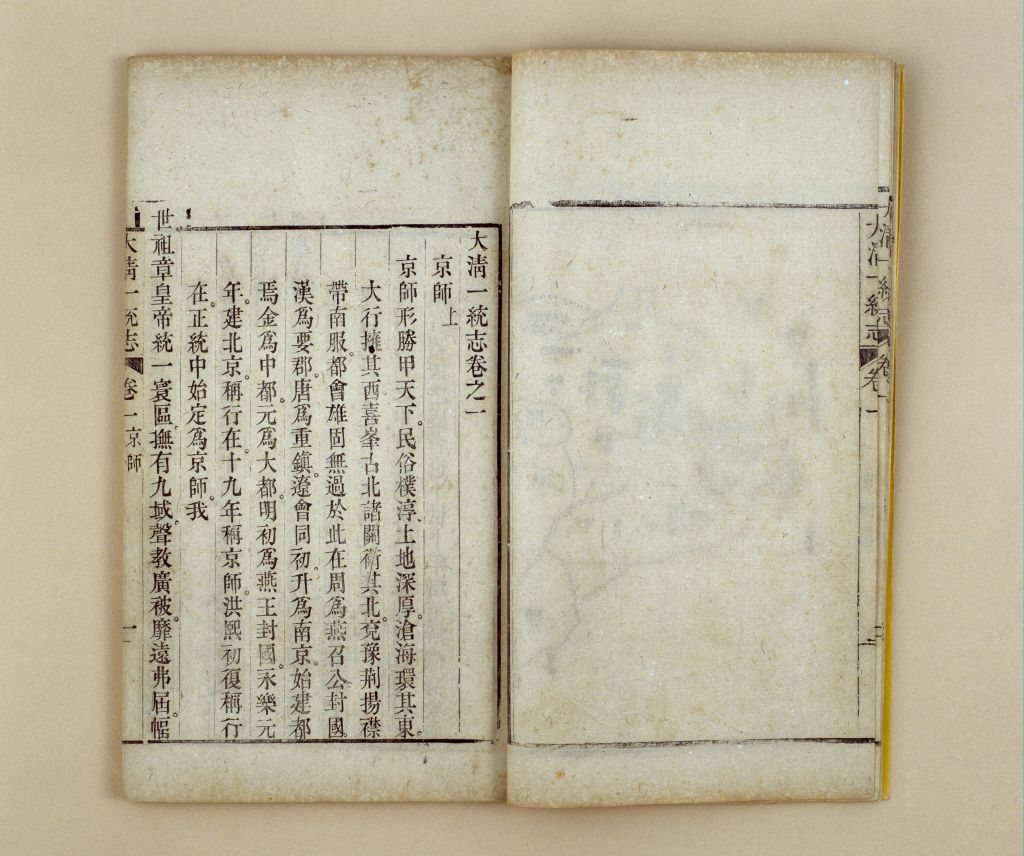 大清一統志
卷一
大清一統志卷之一
京師上
京師形勝甲天下。民俗樸淳。土地深厚。滄海環其東。
大行擁其西。喜峯古北諸關衛其北。兗豫荆揚襟
帶南服。都會雄固無過於此。在周爲燕召公封國。
漢爲要郡。唐爲重鎮。遼會同初。升爲南京。始建都
焉。金爲中都。元爲大都。明初爲燕王封國。永樂元
年。建北京。稱行在。十九年稱京師。洪熙初復稱行
在。正統中始定爲京師。我
世祖章皇帝統一寰區。撫有九域。聲教廣被。靡遠弗屆。幅
大清一統志
卷一京師
一